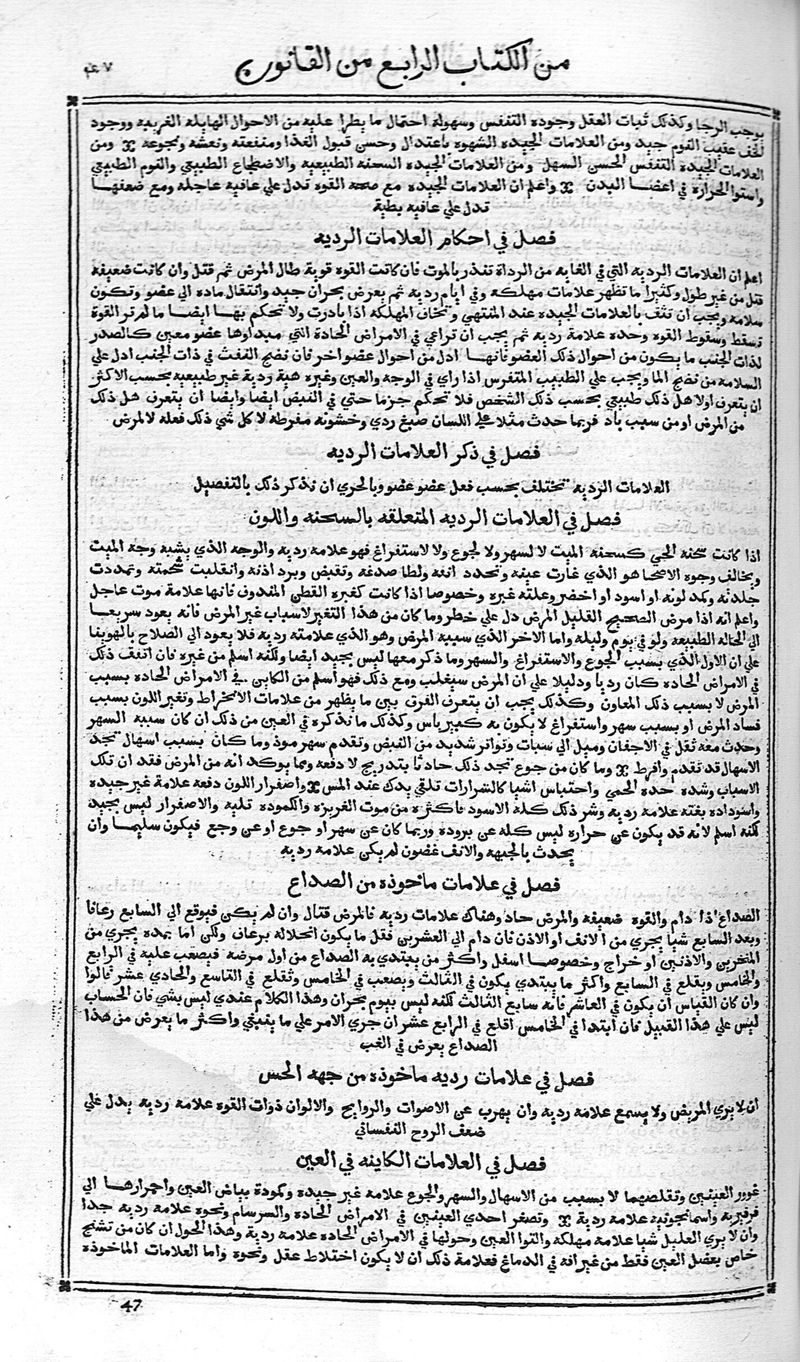 من الكتاب الرابع من القانون
يوجب الرجا وكذلك ثبات العقل وجوده التنفس وسهوله احتمال ما يطرا عليه من الاحوال الهايله الغريبه ووجود
لخف عقيب النوم جيد ومن العلامات الجيده الشهوه باعتدال وحسن قبول الغذا ومنفعته ونعشه ونجوعه ومن
العلامات الجيده التنفس الحسن السهل ومن العلامات الجيده السحنه الطبيعيه والاضطجاع الطبيعي والنوم الطبيعي
واستوا الحراره في اعضا البدن واعلم ان العلامات الجيده مع صحه القوه تدل علي عافيه عاجله ومع ضعفها
تدل علي عافيه بطية
فصل في احكام العلامات الرديه
اعلم ان العلامات الرديه التي في الغايه من الرداة تنذر بالموت فان كانت القوه قوية طال المرض ثم قتل وان كانت ضعيفه
قتل من غير طول وكثيرا ما تظهر علامات مهلكه وفي ايام رديه ثم يعرض بحران جيد وانتقال ماده الي عضو وتكون
سلامه ويجب ان تثق بالعلامات الجيده عند المنتهي وتخاف المهلكه اذا بادرت ولا تحكم بها ايضا ما لم تر القوة
تسقط وسقوط القوه وحده علامة رديه ثم يجب ان تراعي في الامراض الحادة التي مبداوها عضو معين كالصدر
لذات الجنب ما يكون من احوال ذلك العضو فانها ادل من احوال عضو اخر فان نضج النفث في ذات الجنب ادل علي
السلامه من نضج الما ويجب علي الطبيب المتفرس اذا راي في الوجه والعين وغيره هية ردية غير طبيعيه بحسب الاكثر
ان يتعرف اولا هل ذلك طبيعي بحسب ذلك الشخص فلا تحكم جزما حتي في النبض ايضا وايضا ان يتعرف هل ذلك
من المرض او من سبب باد فربما حدث مثلا علي اللسان صبغ ردي وخشونه مفرطه لاكل شي ذلك فعله لا لمرض
فصل في ذكر العلامات الرديه
العلامات الرديه تختلف بحسب فعل عضو عضو وبالحري ان نذكر ذلك بالتفصيل
فصل في العلامات الرديه المتعلقه بالسحنه واللون
اذا كانت سحنه الحي كسحنه الميت لا لسهر ولا لجوع ولا لاستفراغ فهو علامه رديه والوجه الذي يشبه وجه الميت
ويخالف وجوه الاصحا هو الذي غارت عينه وتحدد انفه ولطا صدغه وتقبض وبرد اذنه وانقلبت شحمته وتمددت
جلدته وكمد لونه او اسود او اخضر وعلته غبره وخصوصا اذا كانت كغبره القطن المندوف فانها علامة موت عاجل
واعلم انه اذا مرض الصحيح القليل المرض دل علي خطر وما كان من هذا التغير لاسباب غير المرض فانه يعود سريعا
الي الحاله الطبيعه ولو في يوم وليله واما الاخر الذي سببه المرض وهو الذي علامته رديه فلا يعود الي الصلاح بالهوينا
علي ان الاول الذي بسبب الجوع والاستفراغ والسهر وما ذكر معها ليس بجيد ايضا ولكنه اسلم من غيره فان اتفق ذلك
في الامراض الحاده كان رديا ودليلا علي ان المرض سيغلب ومع ذلك فهو اسلم من الكاين في الامراض الحاده بسبب
المرض لا بسبب ذلك المعاون وكذلك يجب ان يتعرف الفرق بين ما يظهر من علامات الانخراط وتغير اللون بسبب
فساد المرض او بسبب سهر واستفراغ لا يكون به كبير باس وكذلك ما نذكره في العين من ذلك ان كان سببه السهر
وحدث معه ثقل في الاجفان وميل الي سبات وتواتر شديد من النبض وتقدم سهر موذ وما كان بسبب اسهال تجد
الاسهال قد تقدم وافرط وما كان من جوع تجد ذلك حادثا بتدريج لا دفعه ومما يوكد انه من المرض فقد ان تلك
الاسباب وشده حده الحمي واحتباس اشيا كالشرارات تلقي يدك عند المس واصفرار اللون دفعه علامة غير جيده
واسوداده بغته علامه رديه وشر ذلك كله الاسود فاكثره من موت الغريزه والكموده تليه والاصفرار ليس بجيد
لكنه اسلم لانه قد يكون عن حراره ليس كله عن بروده وربما كان عن سهر او جوع او عن وجع فيكون سليما وان
يحدث بالجبهه والانف غضون لم يكن علامه رديه
فصل في علامات ماخوذه من الصداع
الصداع اذا دام والقوه ضعيفه والمرض حاد وهناك علامات رديه فالمرض قتال وان لم يكن فيوقع الي السابع رعافا
وبعد السابع شيا يجري من الانف او الاذن فان دام الي العشرين فقل ما يكون انحلاله برعاف ولكن اما بمده يجري من
المنخرين والاذنين او خراج وخصوصا اسفل واكثر من يبتدي به الصداع من اول مرضه فيصعب عليه في الرابع
والخامس ويقلع في السابع واكثر ما يبتدي يكون في الثالث ويصعب في الخامس وتقلع في التاسع والحادي عشر قالوا
وان كان القياس ان يكون في العاشر فانه سابع الثالث لكنه ليس بيوم بحران وهذا الكلام عندي ليس بشي فان الحساب
ليس علي هذا القبيل فان ابتدا في الخامس اقلع في الرابع عشر ان جري الامر علي ما ينبغي واكثر ما يعرض من هذا
الصداع يعرض في الغب
فصل في علامات رديه ماخوذه من جهه الحس
ان لا يري المريض ولا يسمع علامه ردية وان يهرب عن الاصوات والروايح والالوان ذوات القوه علامه رديه يدل علي
ضعف الروح النفساني
فصل في العلامات الكاينه في العين
غوور العينين وتقلصهما لا بسبب من الاسهال والسهر والجوع علامه غير جيده وكمودة بياض العين واحمرارها الي
فرفيرية واسمانجونيه علامه ردية وتصغر احدي العينين في الامراض الحاده والسرسام ونحوه علامه رديه جدا
وان لا يري العليل شيا علامه مهلكه والتوا العين وحولها في الامراض الحاده علامه ردية وهذا الحول ان كان من تشنج
خاص بعضل العين فقط من غير افه في الدماغ فعلامة ذلك ان لا يكون اختلاط عقل ونحوه واما العلامات الماخوذه
47